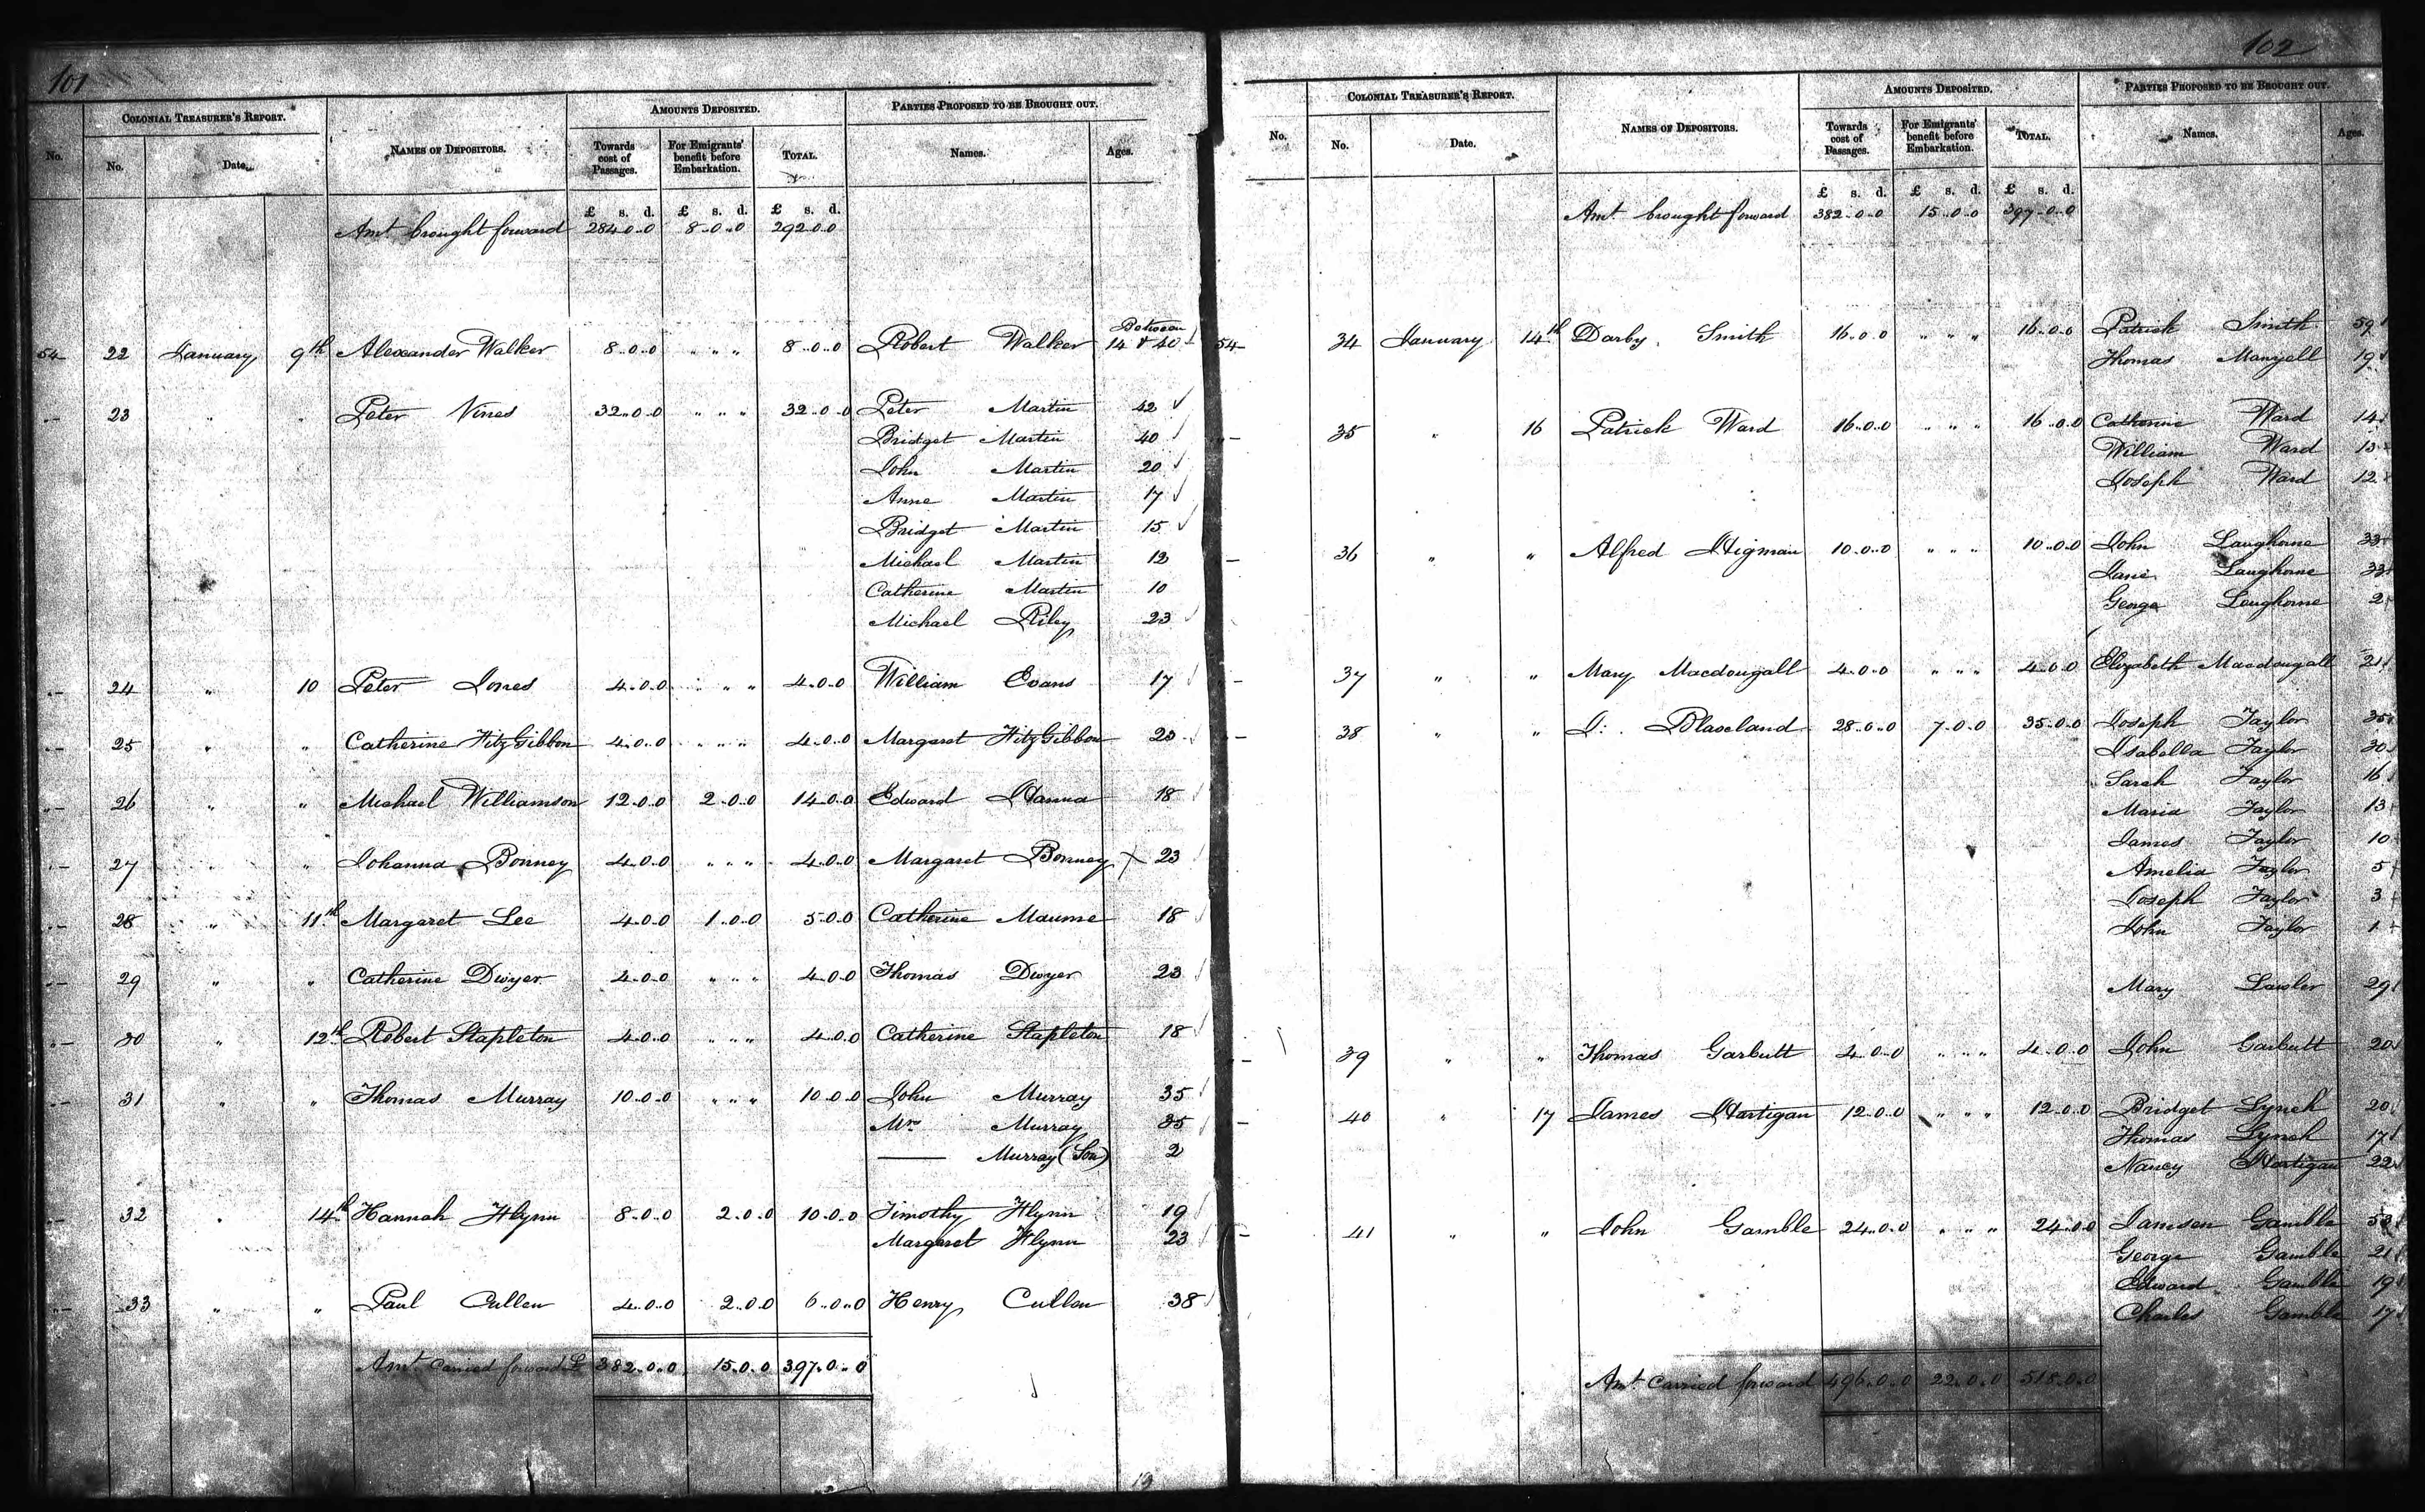 101
COLONIAL TREASURER'S REPORT.
AMOUNTS DEPOSITED.
PARTIES PROPOSED TO BE BROUGHT OUT.
No. No. Date. NAMES OF DEPOSITORS. Towards cost of Passages. For Emigrants' benefit before Embarkation. TOTAL. Names. Ages.
£ s. d. £ s. d. £ s. d.
Amt. brought forward 284..0..0 8..0..0 292..0..0
54 22 January 9th Alexander Walker 8..0..0 " " " 8..0..0 Robert Walker Between 14 & 40
"- 23 " " Peter Vines 32..0..0 " " " 32..0..0 Peter Martin 42 ✓
Bridget Martin 40 ✓
John Martin 20 ✓
Anne Martin 17 ✓
Bridget Martin 15 ✓
Michael Martin 12
Catherine Martin 10
Michael Riley 23 ✓
"- 24 " 10 Peter Jones 4..0..0 " " " 4..0..0 William Evans 17 ✓
"- 25 " " Catherine FitzGibbon 4..0..0 " " " 4..0..0 Margaret FitzGibbon 20
"- 26 " " Michael Williamson 12..0..0 2..0..0 14..0..0 Edward Hanna 18 ✓
"- 27 " " Johanna Bonney 4..0..0 " " " 4..0..0 Margaret Bonney X 23
"- 28 " 11th Margaret Lee 4..0..0 1..0..0 5..0..0 Catherine Maume 18 ✓
"- 29 " " Catherine Dwyer 4..0..0 " " " 4..0..0 Thomas Dwyer 23 ✓
"- 30 " 12th Robert Stapleton 4..0..0 " " " 4..0..0 Catherine Stapleton 18 ✓
"- 31 " " Thomas Murray 10..0..0 " " " 10..0..0 John Murray 35 ✓
Mrs Murray 35 ✓
—— Murray (Son) 2
"- 32 " 14th Hannah Flynn 8..0..0 2..0..0 10..0..0 Timothy Flynn 19 ✓
Margaret Flynn 23 ✓
"- 33 " " Paul Cullen 4..0..0 2..0..0 6..0..0 Henry Cullen 38 ✓
Amt. Carried forward £ 382..0..0 15..0..0 397..0..0
102
COLONIAL TREASURER'S REPORT.
AMOUNTS DEPOSITED.
PARTIES PROPOSED TO BE BROUGHT OUT.
No. No. Date. NAMES OF DEPOSITORS. Towards cost of Passages. For Emigrants' benefit before Embarkation. TOTAL. Names. Ages.
£ s. d. £ s. d. £ s. d.
Amt. brought forward 382..0..0 15..0..0 397..0..0
54 34 January 14th Darby Smith 16..0..0 " " " 16..0..0 Patrick Smith 59
Thomas Mangell 19 ✓
"- 35 " 16 Patrick Ward 16..0..0 " " " 16..0..0 Catherine Ward 14
William Ward 13
Joseph Ward 12
- 36 " " Alfred Higman 10..0..0 " " " 10..0..0 John Langhorne 33
Jane Langhorne 33
George Langhorne 2
- 37 " " Mary Macdougall 4..0..0 " " " 4..0..0 Elizabeth Macdougall 21
- 38 " " J. Blaxland 28..0..0 7..0..0 35..0..0 Joseph Taylor 35
Isabella Taylor 30
Sarah Taylor 16
Maria Taylor 13
James Taylor 10
Amelia Taylor 5
Joseph Taylor 3
John Taylor 1
Mary Lawler 29
- 39 " " Thomas Garbutt 4..0..0 " " " 4..0..0 John Garbutt 20
- 40 " 17 James Hartigan 12..0..0 " " " 12..0..0 Bridget Lynch 20
Thomas Lynch 17
Nancy Hartigan 22
- 41 " " John Gamble 24..0..0 " " " 24..0..0 Jameson Gamble 53
George Gamble 21
Edward Gamble 19
Charles Gamble 17
Amt. Carried forward 496..0..0 22..0..0 518..0..0